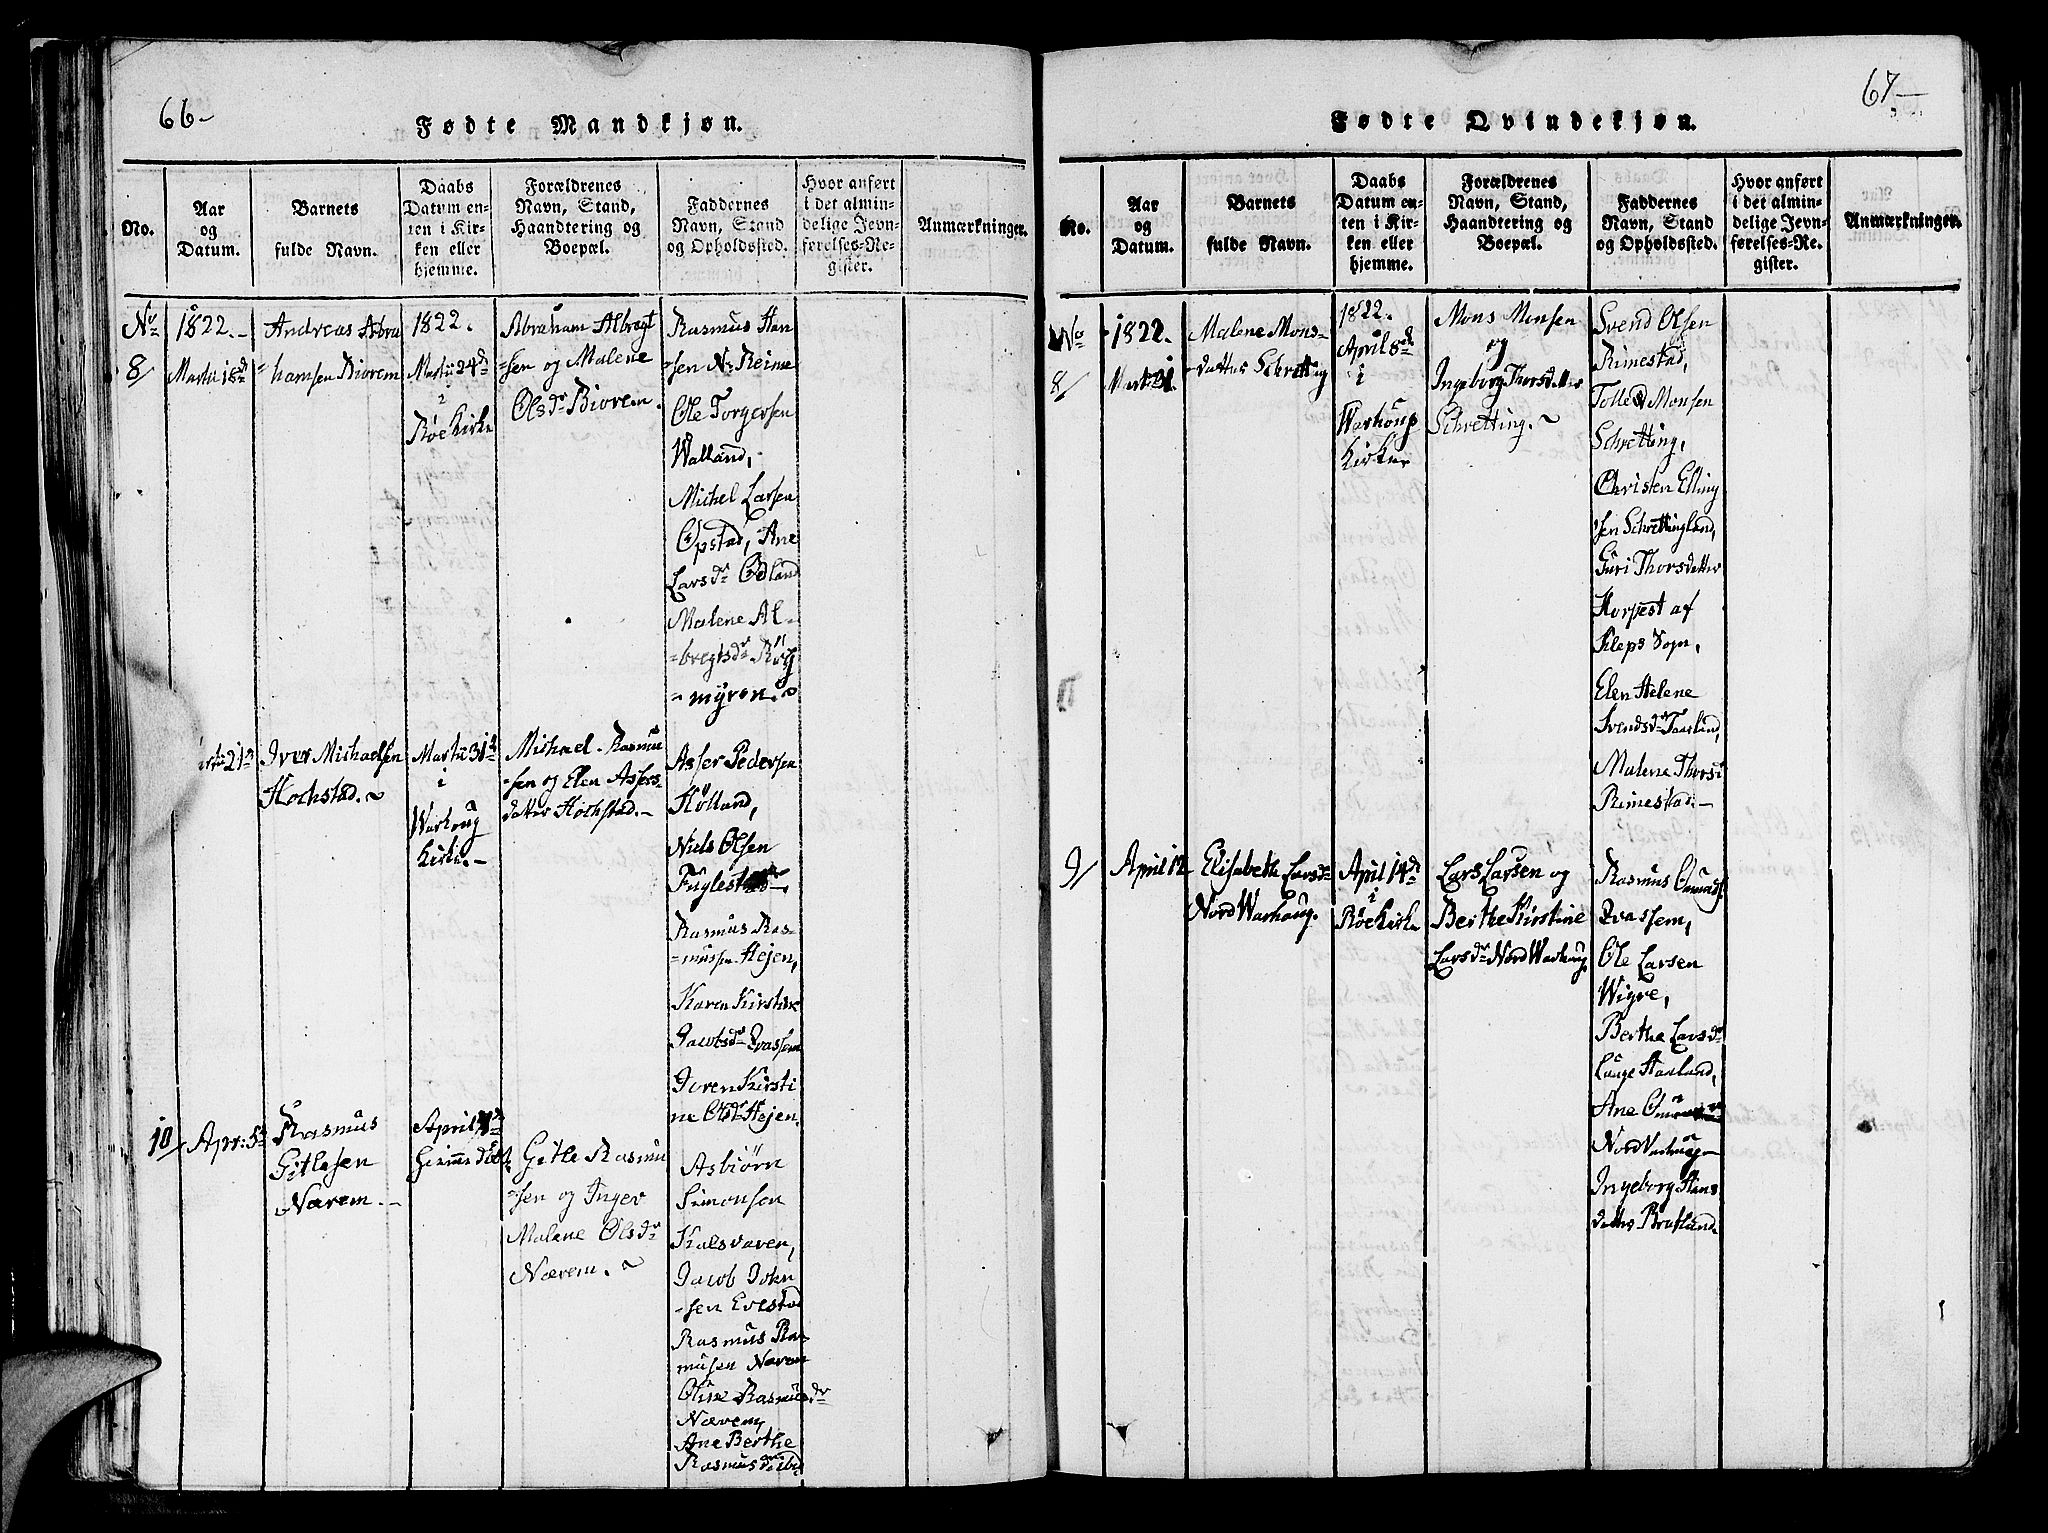 66-
Fødte Mandkjøn.
No.
Aar
og
Datum.
Barnets
fulde Navn.
Daabs
Datum en-
ten i Kir-
ken eller
hjemme.
Forældrenes
Navn, Stand,
Haandtering og
Boepæl.
Faddernes
Navn, Stand
og Opholdssted.
Hvor anført
i det almin-
delige Jevn-
førelses-Re-
gister.
Anmærkninger.
No
8/
1822.-
Martii 18de
Andreas Abra
-hamsen Biorem
1822.
Martii 24de
i
Røe Kirke
Abraham Albregt
-sen og Malene
Olsdr Biorem.
Rasmus Han
-sen N. Reime
Ole Torgersen
Walland,
Michel Larsen
Opstad, Ane
Larsdr Ødland
Malene Al-
-bregtsdr Røŋ
-myren.~
21de
Iver Michaelsen
Hochstad.~
Martii 31te
i
Warhoug
Kirke.-
Michael Rasmu
-sen og Elen Assers-
datter Hochstad.-
Asser Pedersen
Hølland,
Niels Olsen
Fuglestad-,
Rasmus Ras-
-mussen Hejen,
Karen Kirstine
Jacobsdr Qvassem
Joren Kirsti
ne Olsdr Hejen.
10/
Apr: 5te
Rasmus
Gitlesen
Nærem.-
April
hiemmedøbt
Gitle Rasmu
-sen og Inger
Malene Olsdr
Nærem.~
Asbiørn
Simonsen
Kalsvaren,
Jacob John
-sen Evestad
Rasmus Ra-
musen Nærem
Oline Rasmusdr
Nærem,
Ane Berthe
Rasmusdr ibid
67-
Fødte Qvindekjøn.
No.
Aar
og
Datum.
Barnets
fulde Navn.
Daabs
Datum en-
ten i Kir-
ken eller
hjemme.
Forældrenes
Navn, Stand,
Haandtering og
Boepæl.
Faddernes
Navn, Stand
og Opholdssted.
Hvor anført
i det almin-
delige Jevn-
førelses-Re-
gister.
Anmærkninger.
No
8/
1822.
Mart: 21
Malene Mons-
datter Schretting
1822.
April 8de
i
Warhoug
Kirke.
Mons Monsen
og
Ingeborg Thorsdatter
Schretting.~
Svend Olsen
Rimestad,
Tolled Monsen
Schretting,
Christen Elling
-sen Schrettingland,
Guri Thorsdatter
Horpest af
Kleps Sogn,
Elen Helene
Svendsdr Taarland,
Malene Thorsd
Rimestad.-
9/
April 12
Elisabeth Larsdr
Nord Warhaug.
April 14de
i
Røe Kirke
Lars Larsen og
Berthe Kirstine
Larsdr Nord Warhaug
Rasmus Omunds.
Qvassem,
Ole Larsen
Wigre,
Berthe Larsdr
Lauge Haaland,
Ane
Nord Warhaug-
Ingeborg Hans
datter Brusland.